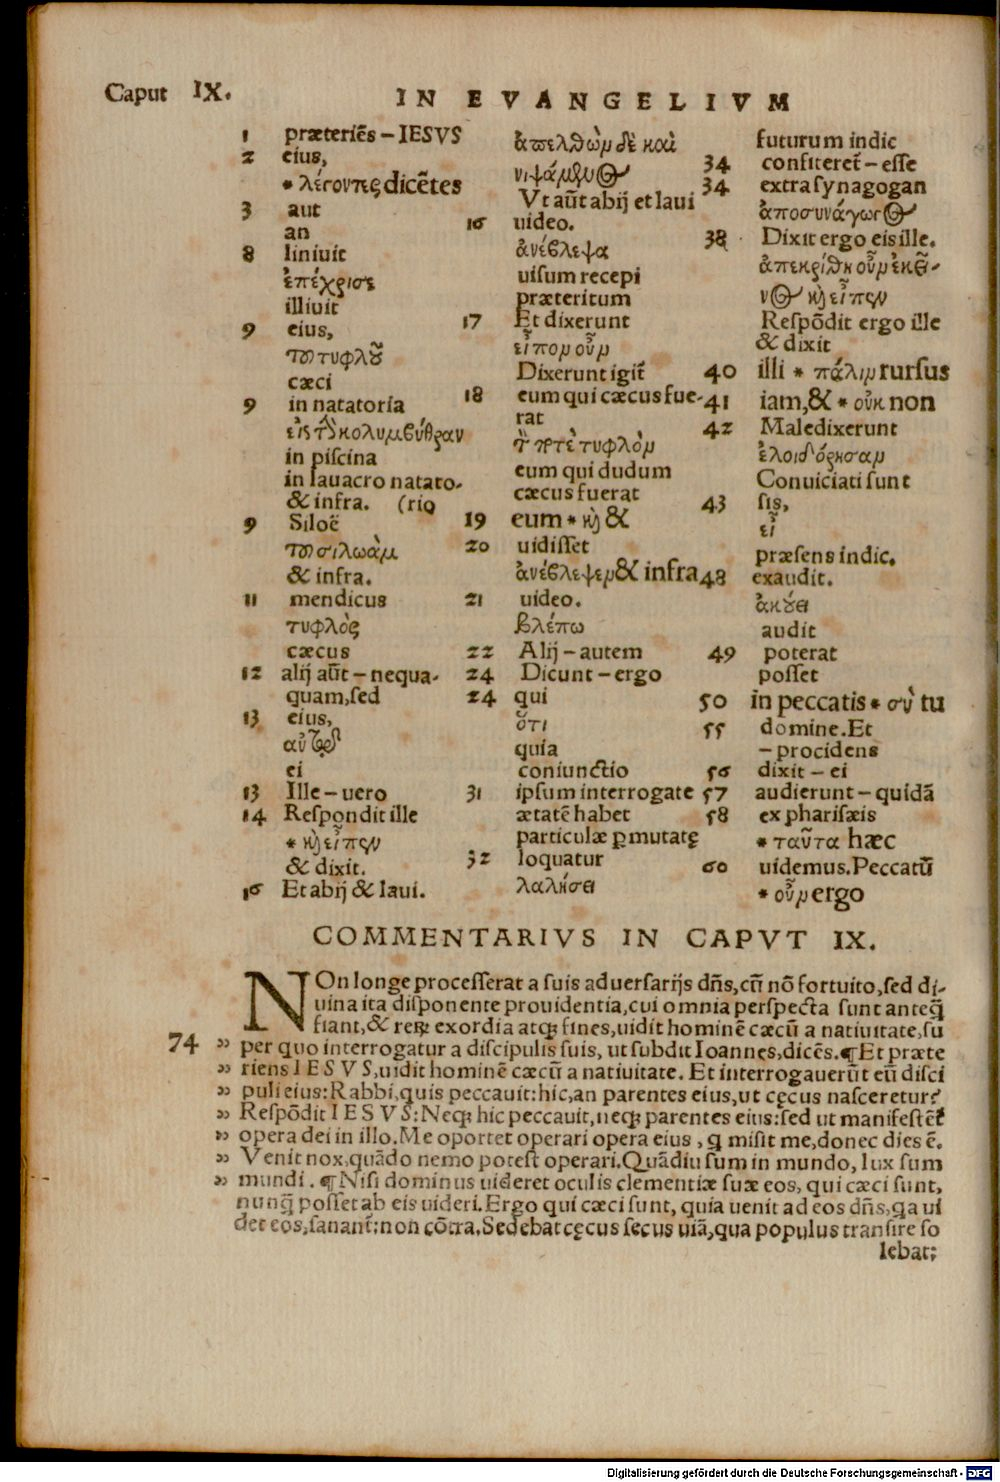 Caput IX.
IN EVANGELIVM
1 præteriēs – IESVS
2 eius,
* λέγοντες dicētes
3 aut
an
8 liniuit
ἐπέχρισε
illiuit
9 eius,
τοῦ τυφλοῦ
cæci
9 in natatoria
εἰς τὴν κολυμβήθραν
in piscina
in lauacro natato-
& infra. (rio
9 Siloë
τοῦ σιλωὰμ
& infra.
11 mendicus
τυφλὸς
cæcus
12 alij aūt – nequa-
quam, sed
13 eius,
αὐτῷ
ei
13 Ille – uero
14 Respondit ille
* καὶ εἶπεν
& dixit.
16 Et abij & laui.
ἀπελθὼν δὲ καὶ
νιψάμενος
Vt aūt abij et laui
16 uideo.
ἀνέβλεψα
uisum recepi
præteritum
17 Et dixerunt
εἶπον οὖν
Dixerunt igit̄
18 eum qui cæcus fue-
rat
τὸν ποτὲ τυφλὸν
eum qui dudum
cæcus fuerat
19 eum * καὶ &
20 uidisset
ἀνέβλεψεν & infra
21 uideo.
βλέπω
22 Alij – autem
24 Dicunt – ergo
24 qui
ὅτι
quia
coniunctio
31 ipsum interrogate
ætatē habet
particulæ p̱mutatę
32 loquatur
λαλήσει
futurum indic
34 confiteret̄ – esse
34 extra synagogan
ἀποσυνάγωγος
38 Dixit ergo eis ille.
ἀπεκρίθη οὖν ἐκεῖ-
νος καὶ εἶπεν
Respōdit ergo ille
& dixit
40 illi * πάλιν rursus
41 iam, & * οὐκ non
42 Maledixerunt
ἐλοιδόρησαν
Conuiciati sunt
43 sis,
εἶ
præsens indic.
48 exaudit.
ἀκούει
audit
49 poterat
posset
50 in peccatis * σὺ tu
55 domine. Et
– procidens
56 dixit – ei
57 audierunt – quidā
58 ex pharisæis
* ταῦτα hæc
60 uidemus. Peccatū
* οὖν ergo
COMMENTARIVS IN CAPVT IX.
NOn longe processerat a suis aduersarijs dn̄s, cū nō fortuito, sed di-
uina ita disponente prouidentia, cui omnia perspecta sunt anteq̄
fiant, & reꝝ exordia atqꝫ fines, uidit hominē cæcū a natiuitate, su
74 ” per quo interrogatur a discipulis suis, ut subdit Ioannes, dicēs. ¶ Et præte
” riens IESVS, uidit hominē cæcū a natiuitate. Et interrogauerūt eū disci
” puli eius: Rabbi, quis peccauit: hic, an parentes eius, ut cęcus nasceretur?
” Respōdit IESVS: Neqꝫ hic peccauit, neqꝫ parentes eius: sed ut manifestēt̄
” opera dei in illo. Me oportet operari opera eius, q̱ misit me, donec dies ē.
” Venit nox, quādo nemo potest operari. Quādiu sum in mundo, lux sum
” mundi. ¶ Nisi dominus uideret oculis clementiæ suæ eos, qui cæci sunt,
nunq̄ posset ab eis uideri. Ergo qui cæci sunt, quia uenit ad eos dn̄s, q̱a ui
det eos, sanant̄: non cōtra. Sedebat cęcus secus uiā, qua populus transire so
lebat: